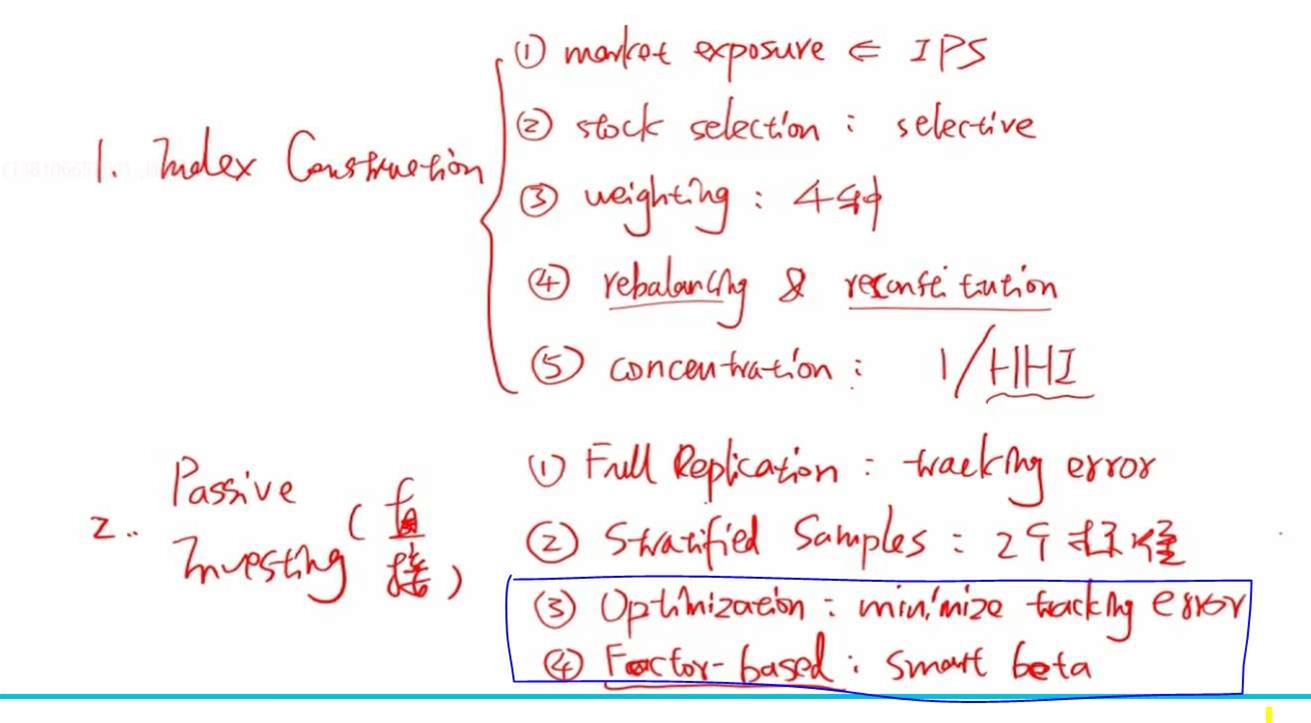 1. Index Construction
① market exposure ⇐ IPS
② stock selection : selective
③ weighting : 4种
④ rebalancing & reconstitution
⑤ concentration : 1/HHI
2. Passive Investing (直接)
① Full Replication : tracking error
② Stratified Samples : 2个
③ Optimization : minimize tracking error
④ Factor-based : smart beta